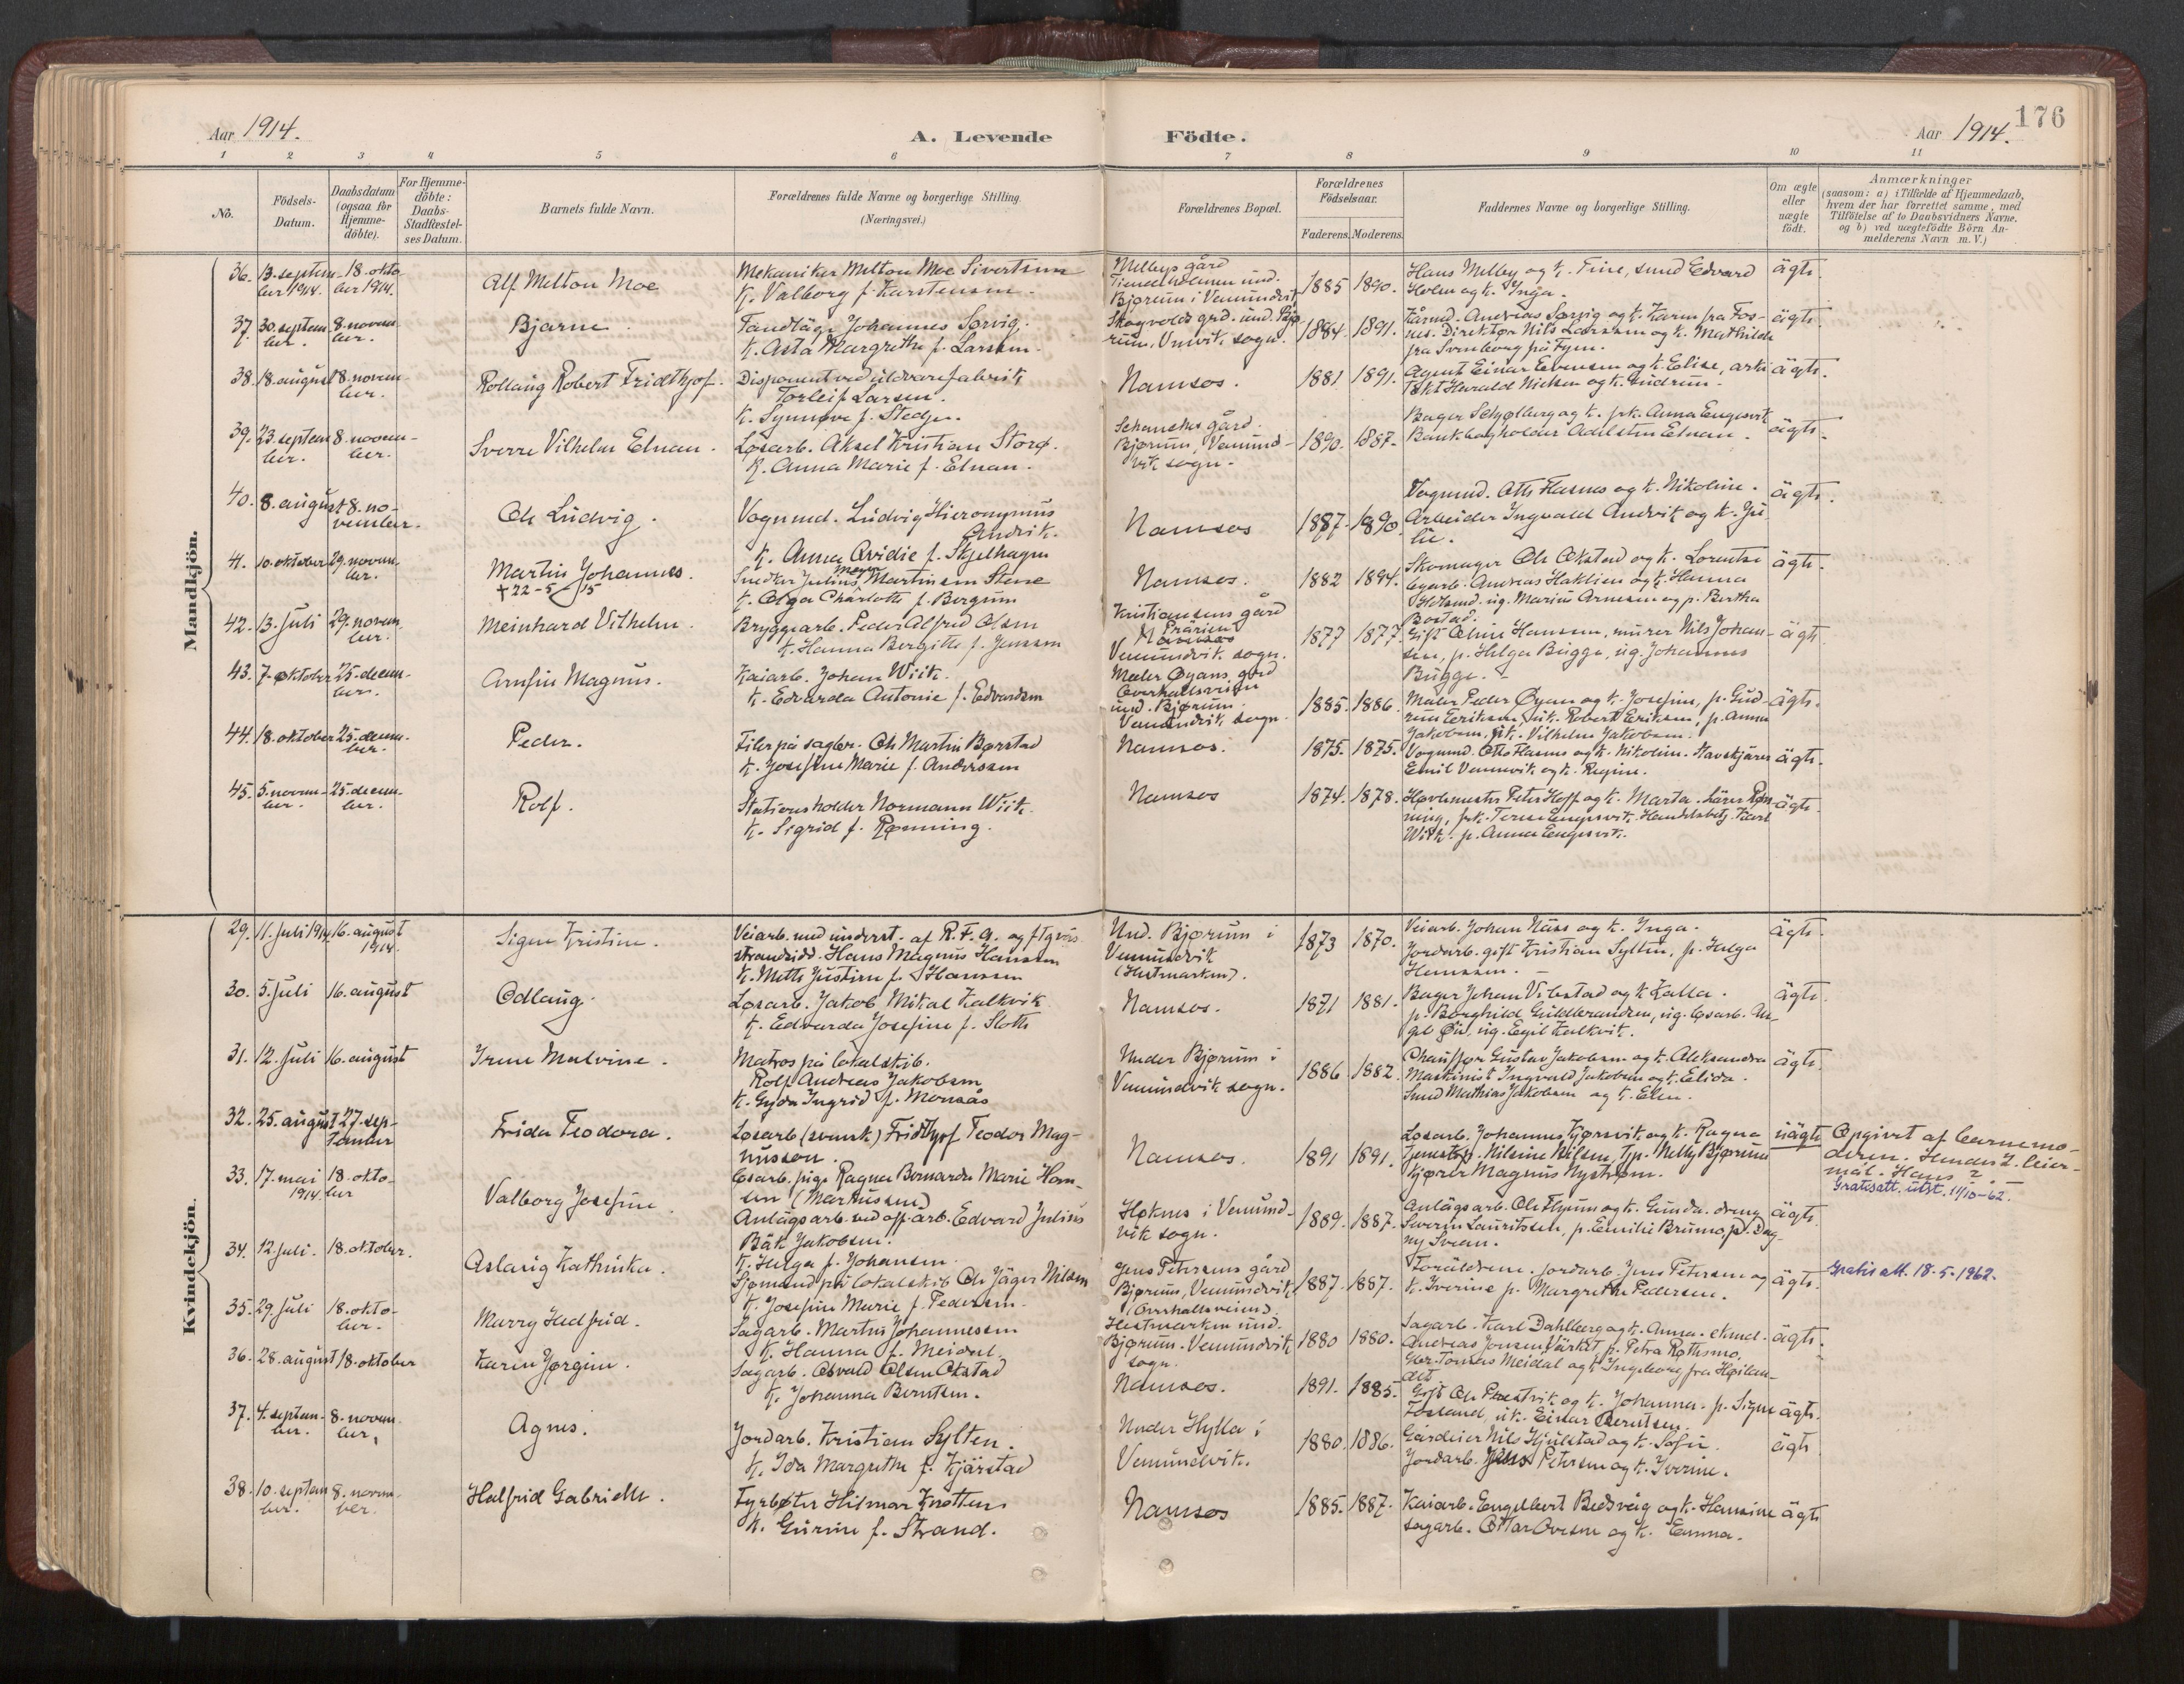 176
Aar 1914.
A. Levende Födte.
Aar 1914.
1 2 3 4 5 6 7 8 9 10 11
No.
Födsels-
Datum.
Daabsdatum
(ogsaa for
Hjemme-
döbte).
For Hjemme-
döbte:
Daabs-
Stadfæstel-
ses Datum.
Barnets fulde Navn.
Forældrenes fulde Navne og borgerlige Stilling
(Næringsvei.)
Forældrenes Bopæl.
Forældrenes
Födselsaar.
Faderens. Moderens.
Faddernes Navne og borgerlige Stilling.
Om ægte
eller
uægte
födt.
Anmærkninger
(saasom: a) i Tilfælde af Hjemmedaab,
hvem der har forrettet samme, med
Tilföielse af to Daabsvidners Navne.
og b) ved uægtefödte Börn An-
melderens Navn m. V.)
Mandkjön.
36. 13. septem-
ber 1914.
18. okto-
ber 1914.
Alf Melton Moe
Mekaniker Melton Moe Sivertsen
k. Valborg f. Karstensen.
Mellbys gård
Tiendeholmen und.
Bjørum i Vemundvik
1885 1890.
Hans Melby og k. Trine, smed Edvard
Holm og k. Inga.
ägte.
37. 30. septem-
ber.
8. novem-
ber.
Bjarne.
Tandläge Johannes Sørvig.
k. Asta Margrethe f. Larssen.
Skogvolds grd. und. Bjø-
rum, Vmvik sogn.
1884. 1891.
Gårmd. Andreas Sørvig og k. Karen fra Fos-
nes. Direktør Nils Larssen og k. Mathilde
fra Svenborg på Fyen.
ägte.
38. 18. august 8. novem-
ber.
Rollaug Robert Fridthjof.
Disponent ved uldvarefabrik
Torleif Larsen.
k. Synnøve f. Stedje.
Namsos.
1881. 1891.
Agent Einar Evensen og k. Elise, arki-
tekt Harald Nielsen og k. Gudrun.
ägte.
39. 23. septem-
ber.
8. novem-
ber.
Sverre Vilhelm Elnan.
Løsarb. Aksel Kristian Storø.
k. Anna Marie f. Elnan.
Schanches gård.
Bjørum, Vemund-
vik sogn.
1890. 1887.
Bager Schjølberg og k. frk. Anna Engesvik
Bankbogholder Adelsten Elnan.
ägte.
40. 8. august 8. no-
vember.
Ole Ludvig.
Vognmd. Ludvig Hieronymus
Andvik.
k. Anna Ovidie f. Skjelhagen
Namsos
1887. 1890.
Vognmd. Otto Hasnes og k. Nikoline.
Arbeider Ingvald Andvik og k. Ju-
lie.
ägte.
41. 10. oktober 29. novem-
ber.
Martin Johannes.
+ 22-5-15
Snedker Julius Meyer Martinsen Stene
k. Olga Charlotte f. Bergum
Namsos.
1882 1894.
Skomager Ole Okstad og k. Lorentse
Løsarb. Andreas Haklien og k. Hanna
Hvlsmd. ug. Marius Arnesen og p. Bertha
Bostad.
ägte.
42. 13. juli 29. novem.
ber.
Meinhard Vilhelm.
Bryggearb. Peder Alfred Olsen
k. Hanna Bergitte f. Jenssen
Kristiansens gård
Prärien
Namsos
Vemundvik sogn.
1877 1877.
Gift Oline Hanssen, murer Nils Johan-
sen, p. Helga Bugge, ug. Johannes
Bugge.
ägte
43. 7. oktober 25. decem-
ber.
Arnfin Magnus.
Kaiarb. Johan Wiik.
k. Edvarda Antonie f. Edvardsen
Maler Øyans gård
Overhallsveien
und. Bjørum.
Vemundvik sogn.
1885. 1886.
Maler Peder Øyan og k. Josefine, p. Gud-
run Eriksen, uk. Robert Eriksen, p. Anna
Jakobsen, uk. Vilhelm Jakobsen.
ägte.
44. 18. oktober 25. decem-
ber.
Peder.
Filer på sagbr. Ole Martin Børstad
k. Josefine Marie f. Anderssen
Namsos.
1875. 1875.
Vognmd. Otto Hasnes og k. Nikoline. Stavskjärer
Emil Vennevik og k. Regine.
ägte.
45. 5. novem-
ber.
25. decem-
ber.
Rolf.
Stationsholder Normann Wiik.
k. Sigrid f. Rønning.
Namsos
1874. 1878.
Høvlmester Peter Hoff og k. Marta. Lärer Røn-
ning, frk. Terese Engesvik. Handelsbetj. Karl
Wiik. p. Anna Engesvik.
ägte.
Kvindekjön.
29. 11. juli 1914 16. august
1914.
Signe Kristine.
Veiarb. med underst. af R.F.A. og ftgväs
strandsidd. Hans Magnus Hanssen
k. Mette Justine f. Hanssen
Und. Bjørum i
Vemundvik
(Hestmarken).
1873 1870.
Veiarb. Johan Näss og k. Inga.
Jordarb. gift Kristian Sylten, p. Helga
Hanssen.
ägte.
30. 5. juli 16. august
Odlaug.
Løsarb. Jakob Mikal Kalkvik
k. Edvarda Josefine f. Slotte
Namsos.
1871 1881.
Bager Johan Vibstad og k. Kalla.
p. Borghild Guldbrandsen, ug. løsarb. Au-
gst Øie, ug. Egil Kalkvik.
ägte.
31. 12. juli 16. august
Irene Malvine.
Matros på lokalskib.
Rolf Andreas Jakobsen
k. Gyda Ingrid f. Monsås
Under Bjørum i
Vemundvik sogn.
1886 1882.
Chauffør Gustav Jakobsen og k. Aleksandra
Maskinist Ingvald Jakobsen og k. Elida.
Smed Mathias Jakobsen og k. Elen.
ägte.
32. 25. august 27. sep-
tember
Frida Teodora.
Løsarb (svensk) Fridthjof Teodor Mag-
nusson.
Løsarb. pige Ragna Bernarda Marie Han-
sen (Martinssen)
Namsos.
1891 1891.
Løsarb. Johannes Kjørsvik og k. Ragna
Tjenestep. Nilsine Nilsen, Tjp. Nelly Bjørum
Kjører Magnus Nystrøm.
uägte
Opgivet af barnemo-
deren. Hendes 2. leier-
mål. Hans ?.
Gratisatt. utst. 11/10-62.
33. 17. mai
1914.
18. okto-
ber
Valborg Josefine.
Anlägsarb. ved off. arb. Edvard Julius
Bäk Jakobsen.
k. Helga f. Johansen
Høknes i Vemund-
vik sogn.
1889. 1887.
Anlägsarb. Ole Flynum og k. Gunda. dreng
Sverin Lauritssen, p. Emilie Bruno, p. Dag-
ny Svean.
ägte.
34. 12. juli. 18. oktober.
Aslaug Kathinka.
Sjømand på lokalskib Ole Jäger Nilsen
k. Josefine Marie f. Pedersen.
Jens Petersens gård
Bjørum, Vemundvik
(Overhallsveien).
1887. 1887.
Foräldrene. Jordarb. Jens Petersen og
k. Iverine p. Margrethe Pedersen.
ägte.
Gratis att. 18-5-1962.
35. 29. juli 18. okto-
ber.
Marry Hedfrid.
Sagarb. Martin Johannessen
k. Hanna f. Meidal.
Hestmarken und.
Bjørum. Vemundvik
sogn.
1880 1880.
Sagarb. Karl Dahlberg og k. Anna. ekmd.
Andreas Jonsen Värket, p. Petra Røthsmo.
Gbr. Tomas Meidal og k. Ingeborg fra Høilan-
det
ägte.
36. 28. august 18. oktober
Karen Jørgine.
Sagarb. Osvald Olsen Okstad
k. Johanna Berntsen.
Namsos.
1891. 1885.
Gift Ole Prestvik og k. Johanna. p. Signe
Fosland, uk. Einar Berntsen.
ägte.
37. 4. septem-
ber.
8. novem-
ber.
Agnes.
Jordarb. Kristian Sylten.
k. Ida Margrethe f. Kjärstad
Under Hylla i
Vemundvik.
1880. 1886.
Gårdeier Nils Hjulstad og k. Sofie.
Jordarb. Jens Petersen og k. Iverine.
ägte.
38. 10. septem-
ber.
8. novem-
ber.
Halfrid Gabrielle.
Fyrbøter Hilmar Knotten
k. Gurine f. Strand.
Namsos
1885. 1887.
Kaiarb. Engelbert Bredsvåg og k. Hansine
Sagarb. Ottar Ovesen og k. Emma.
ägte